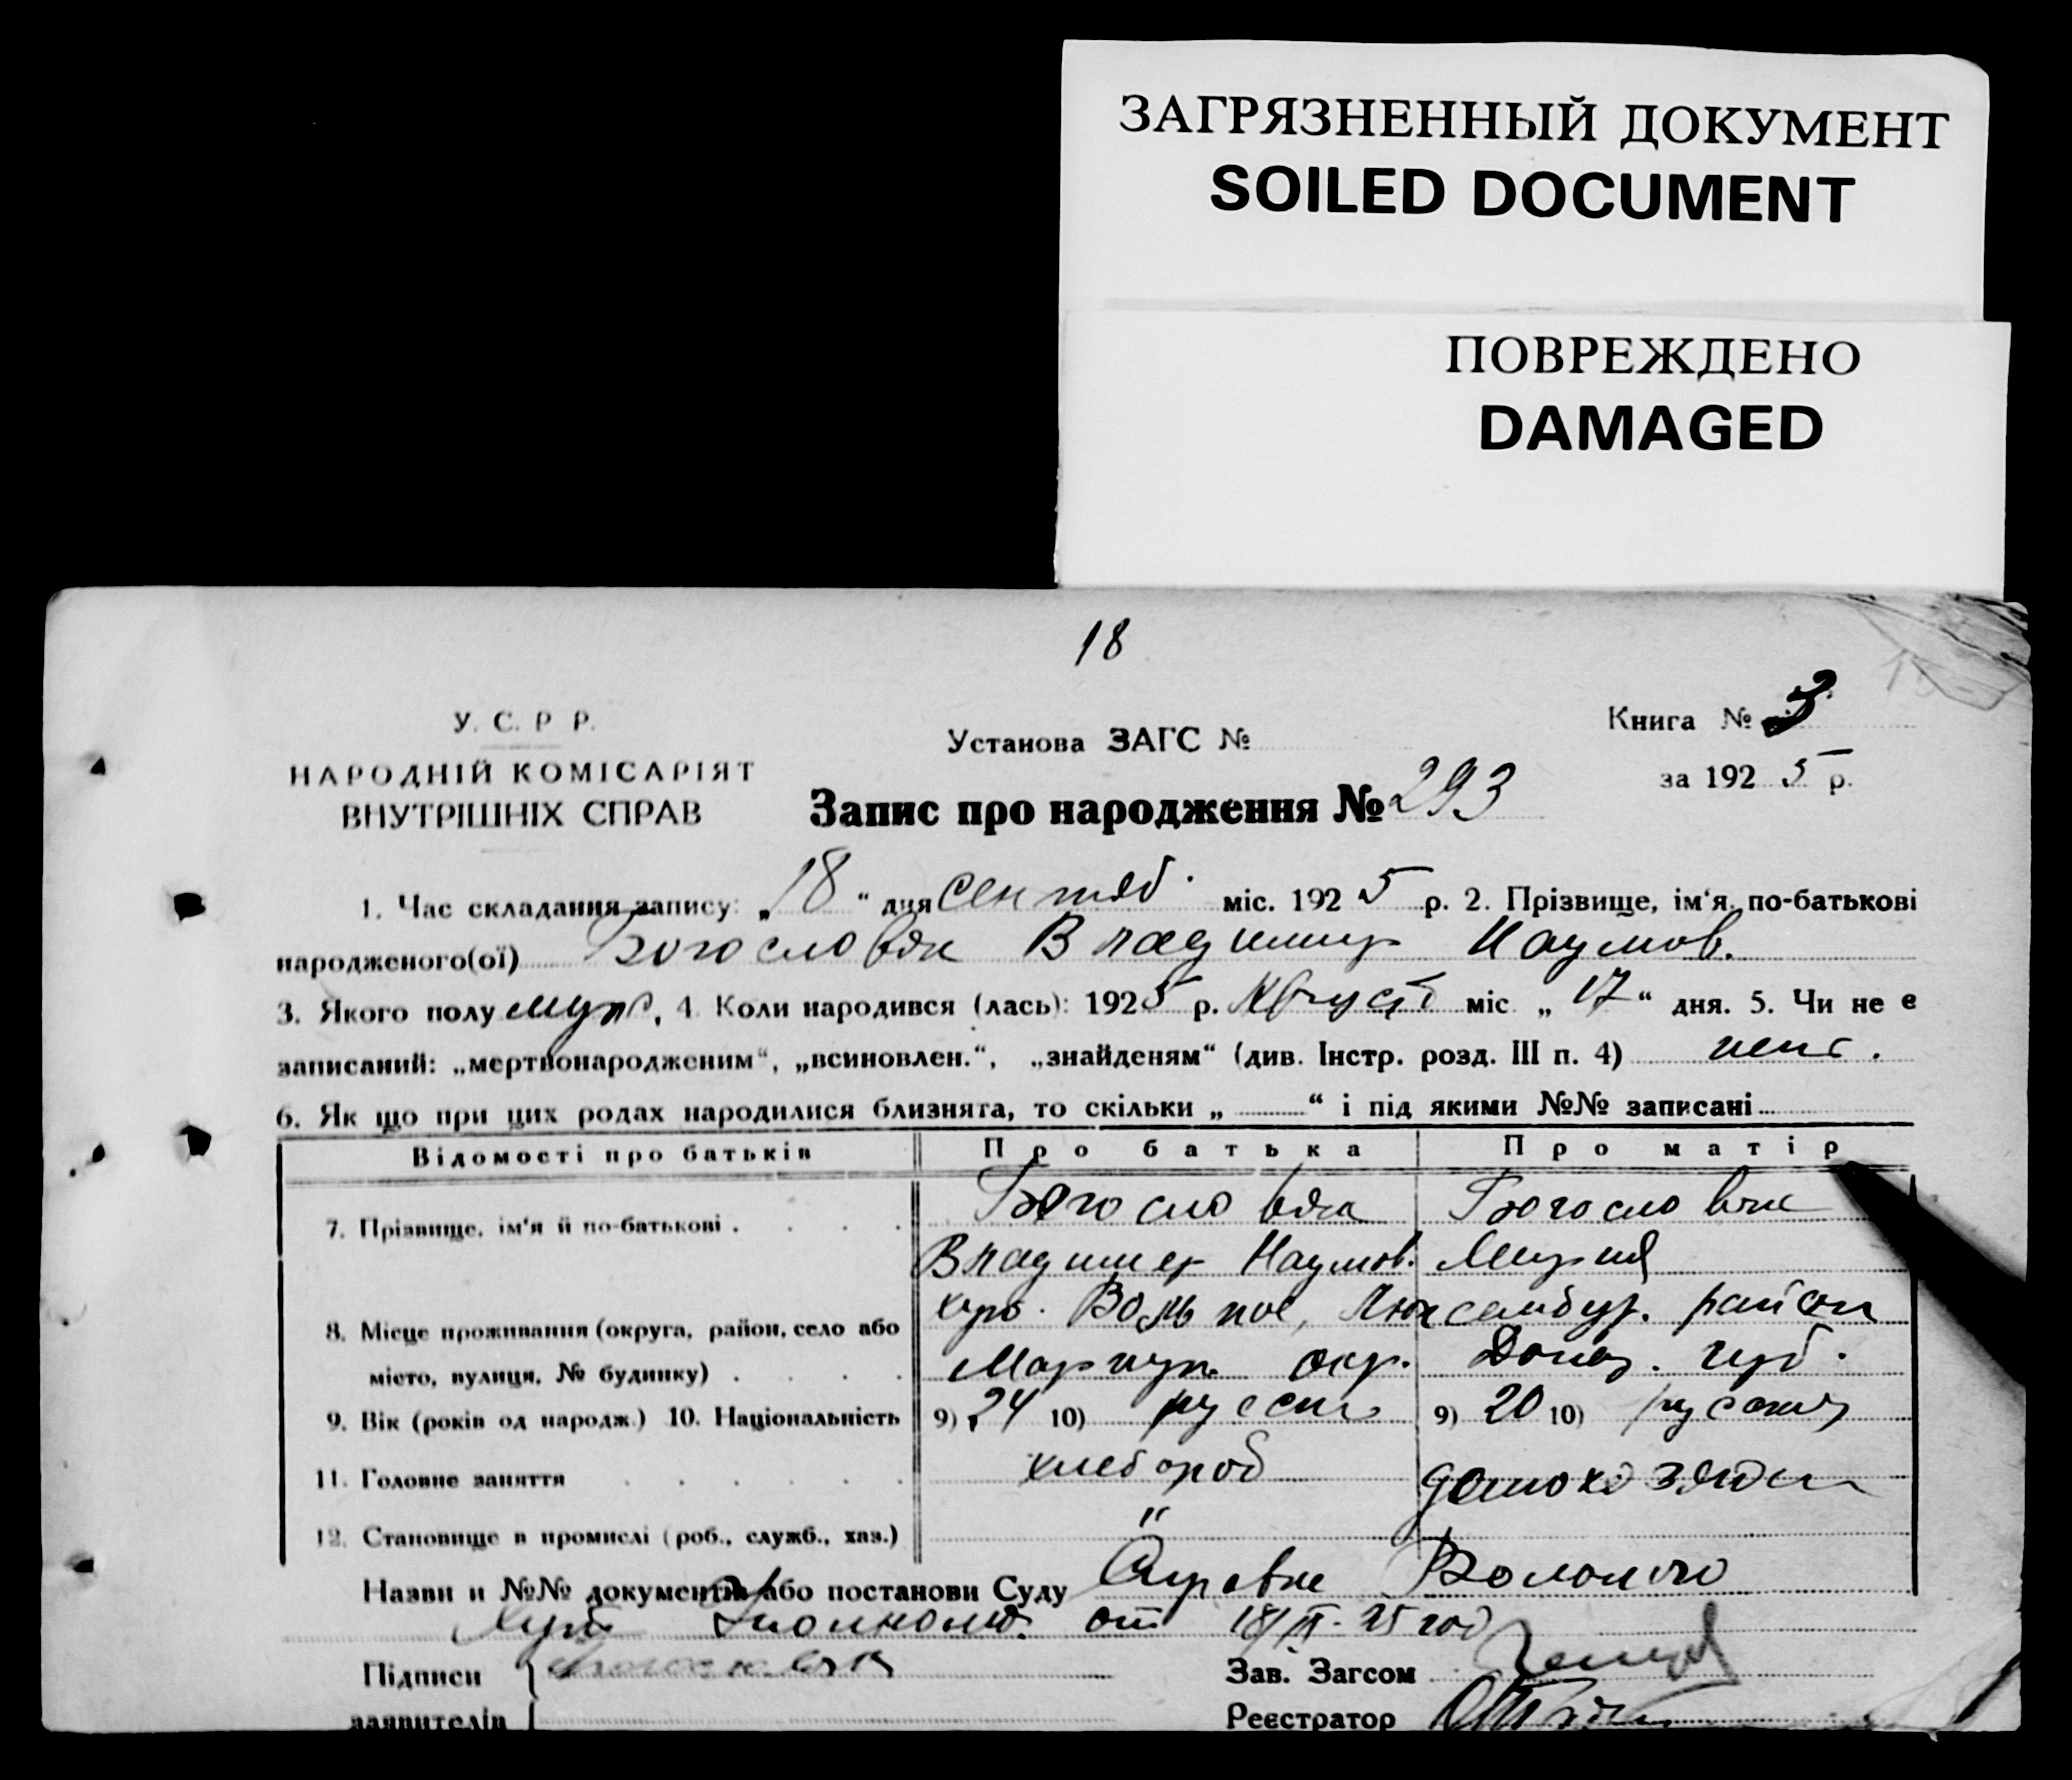 ЗАГРЯЗНЕННЫЙ ДОКУМЕНТ
SOILED DOCUMENT
ПОВРЕЖДЕНО
DAMAGED
18
У. С. Р Р.
НАРОДНІЙ КОМІСАРІЯТ
ВНУТРІШНІХ СПРАВ
Установа ЗАГС №
Книга № 3
за 192 5 р.
Запис про народження № 293
1. Час складання запису: „ 18 “ дня сентяб. міс. 192 5 р. 2. Прізвище, ім‘я, по-батькові
народженого(ої) Богословян Владимир Наумов.
3. Якого полу муж. 4. Коли народився (лась): 1925 р. Август міс. „ 17 “ дня. 5. Чи не є
записаний: „мертвонародженим“, „всиновлен.“, „знайденям“ (див. Інстр. розд. III п. 4)
6. Як що при цих родах народилися близнята, то скільки „ “ і під якими №№ записані
Відомості про батьків Про батька Про матір
7. Прізвище, ім‘я й по-батькові . Богословян Богословян
Владимир Наумов. Мария
8. Місце проживання (округа, район, село або хут. Вольное, Люксембур. район
місто, вулиця, № будинку) . Мариуп. окр. Донец. губ.
9. Вік (років од народж.) 10. Національність 9) 24 10) русск 9) 20 10)
11. Головне заняття хлебороб домохозяй
12. Становище в промислі (роб., служб., хаз.) "
Назви и №№ документів або постанови Суду
от 18/IX-25 год
Підписи Зав. Загсом
заявителів Реєстратор